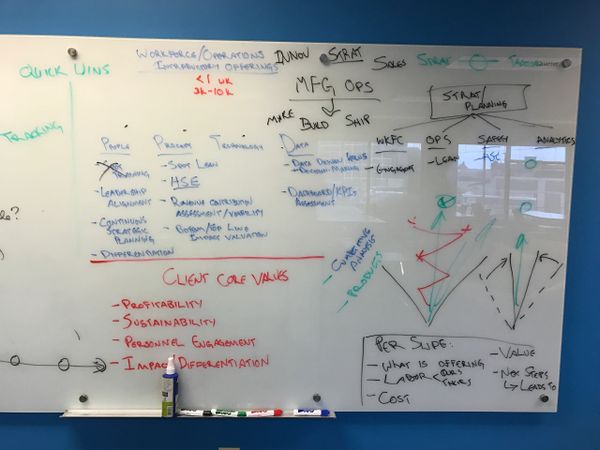 QUICK WINS
TRACKING
WORKFORCE/OPERATIONS
INTRODUCTORY OFFERINGS
<1 WK
2K-10K
INNOV STRAT SALES STRAT
MFG OPS
MAKE BUILD SHIP
STRAT/
PLANNING
WKFC OPS SAFETY ANALYTICS
- ENGAGEMENT
- LEAN
- HSE
PEOPLE
TRAINING
- LEADERSHIP
ALIGNMENT
- CONTINUOUS
STRATEGIC
PLANNING
- DIFFERENTIATION
PROCESS
- SPOT LEAN
- HSE
- REVENUE CONTRIBUTION
ASSESSMENT/VIABILITY
- BOTTOM/TOP LINE
IMPACT VALUATION
TECHNOLOGY
DATA
- DATA DRIVEN
DECISION-MAKING
- DASHBOARD/KPIS
ASSESSMENT
CLIENT CORE VALUES
- PROFITABILITY
- SUSTAINABILITY
- PERSONNEL ENGAGEMENT
- IMPACT DIFFERENTIATION
- COMPETITIVE
ANALYSIS
- PRODUCTS
PER SLIDE:
- WHAT IS OFFERING
- LABOR < OURS
THEIRS
- COST
- VALUE
- NEXT STEPS
↳ LEADS TO